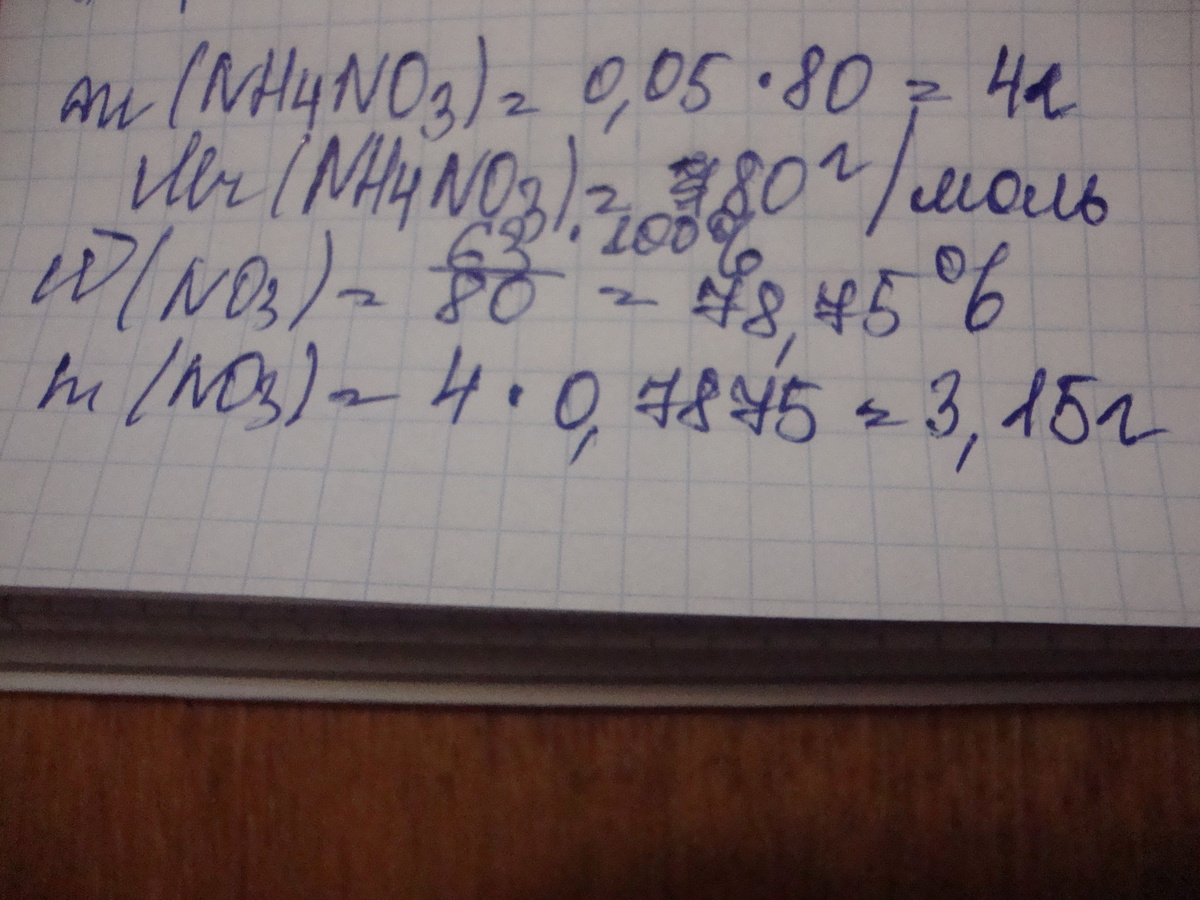 m(NH4NO3) = 0,05 · 80 = 4г
Mr(NH4NO3) = 80 г/моль
W(NO3) = 63/80 · 100% = 78,75%
m(NO3) = 4 · 0,7875 = 3,15г